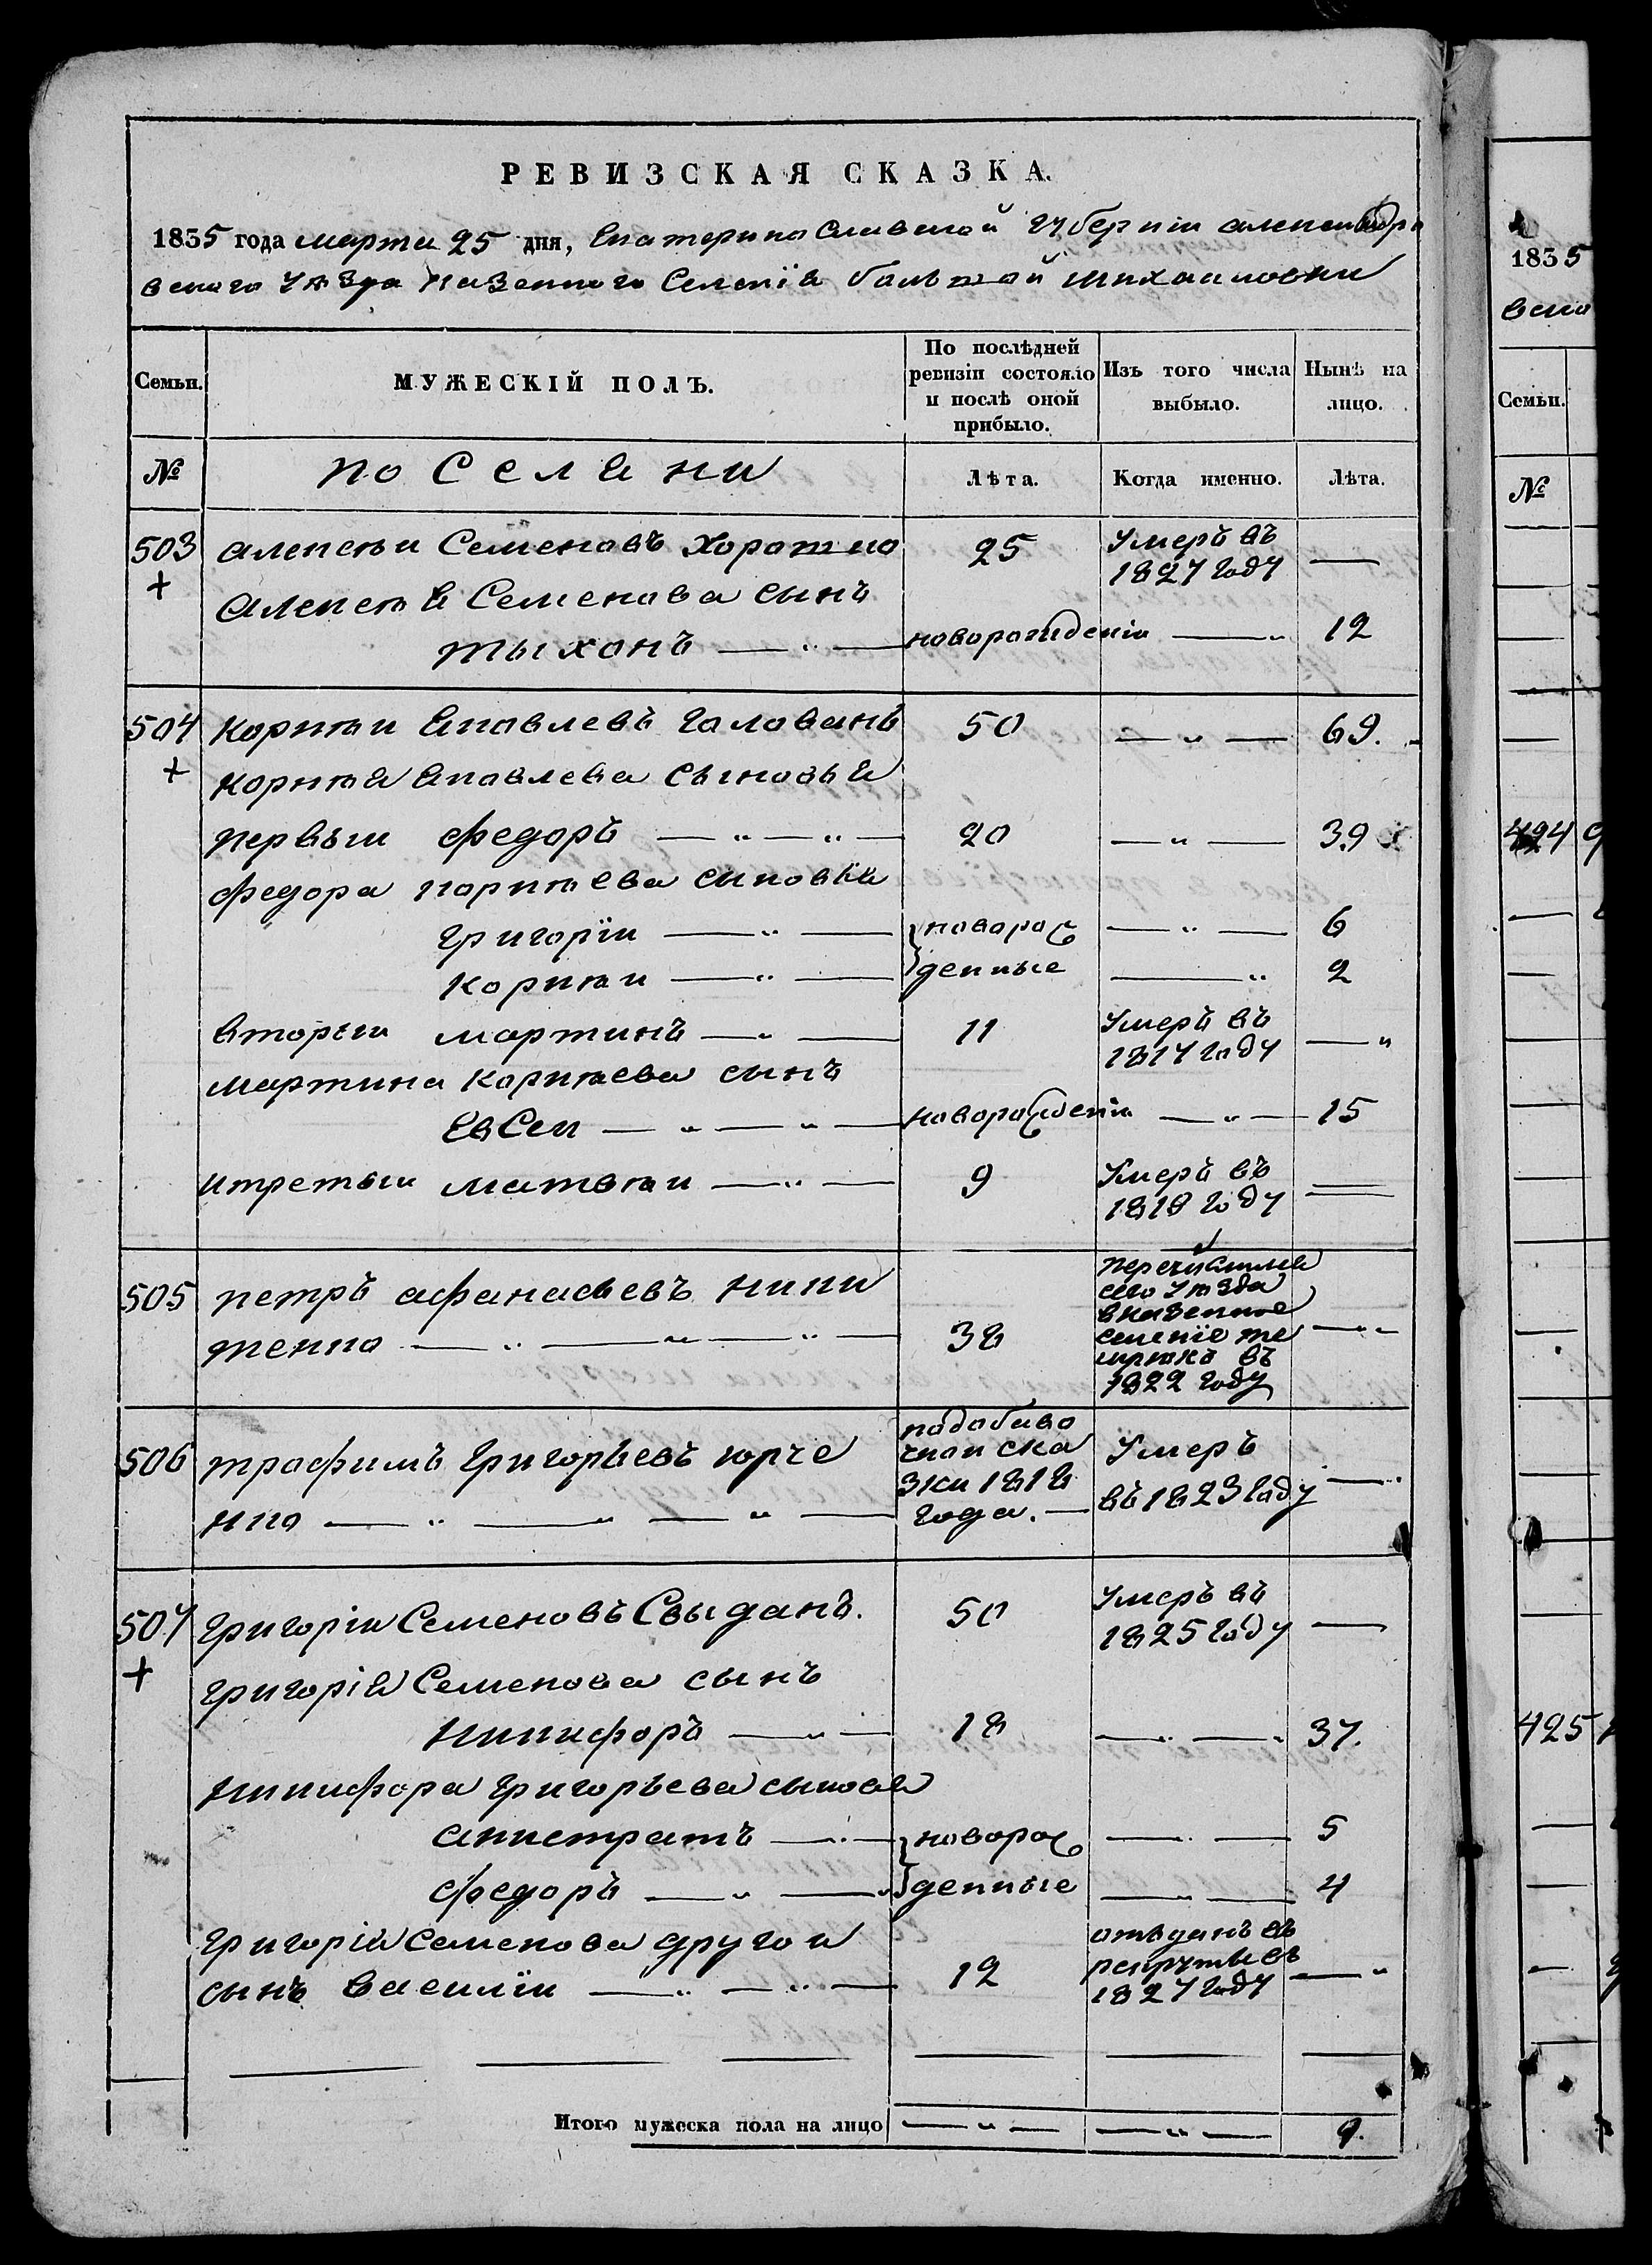 РЕВИЗСКАЯ СКАЗКА.
1835 года марта 25 дня, Екатеринославской губернiи александро
вского уѣзда казенного Селенiя болшой михаиловки
Семьи.
МУЖЕСКIЙ ПОЛЪ.
По послѣдней ревизiи состояло и послѣ оной прибыло.
Изъ того числа выбыло.
Нынѣ на лицо.
№
поселяни
Лѣта.
Когда именно.
Лѣта.
503 алексѣи Семеновъ Хорошко 25 Умеръ въ 1827 году —
Алексѣя Семенова сынъ
тыхонъ — новорожденiи — 12
504 корнѣи Яковлевъ Головань 50 — 69.
корнѣя Яковлева сыновья
первыи федоръ — 20 — 39
федора корнѣева сыновья
Григорiи — новорож — 6
корнѣи — денные — 2
вторыи мартинъ — 11 Умеръ въ 1817 году —
мартина корнѣева сынъ
Евсеи — новорожденiи — 15
итретѣи матвѣи — 9 Умеръ въ 1818 году —
505 петръ афанасьевъ ники
тенко — 38 перечислился сего уѣзда вказенное селенiе те въ 1822 году —
506 трофимъ Григорьевъ юрче
нко — подобаво чнои ска зки 1818 года. — Умеръ въ 1823 году —
507 Григорiи Семеновъ Свыданъ. 50 Умеръ въ 1825 году —
григорiя Семенова сынъ
никифоръ — 18 — 37.
никифора григорьева сыновя
акистратъ — новорож — 5
федоръ — денные — 4
григорiя семенова другои
сынъ василiи — 12 отъданъ въ рекруты въ 1827 году —
Итого мужеска пола на лицо — — 9.
1835
вско
Семьи.
№
424
425